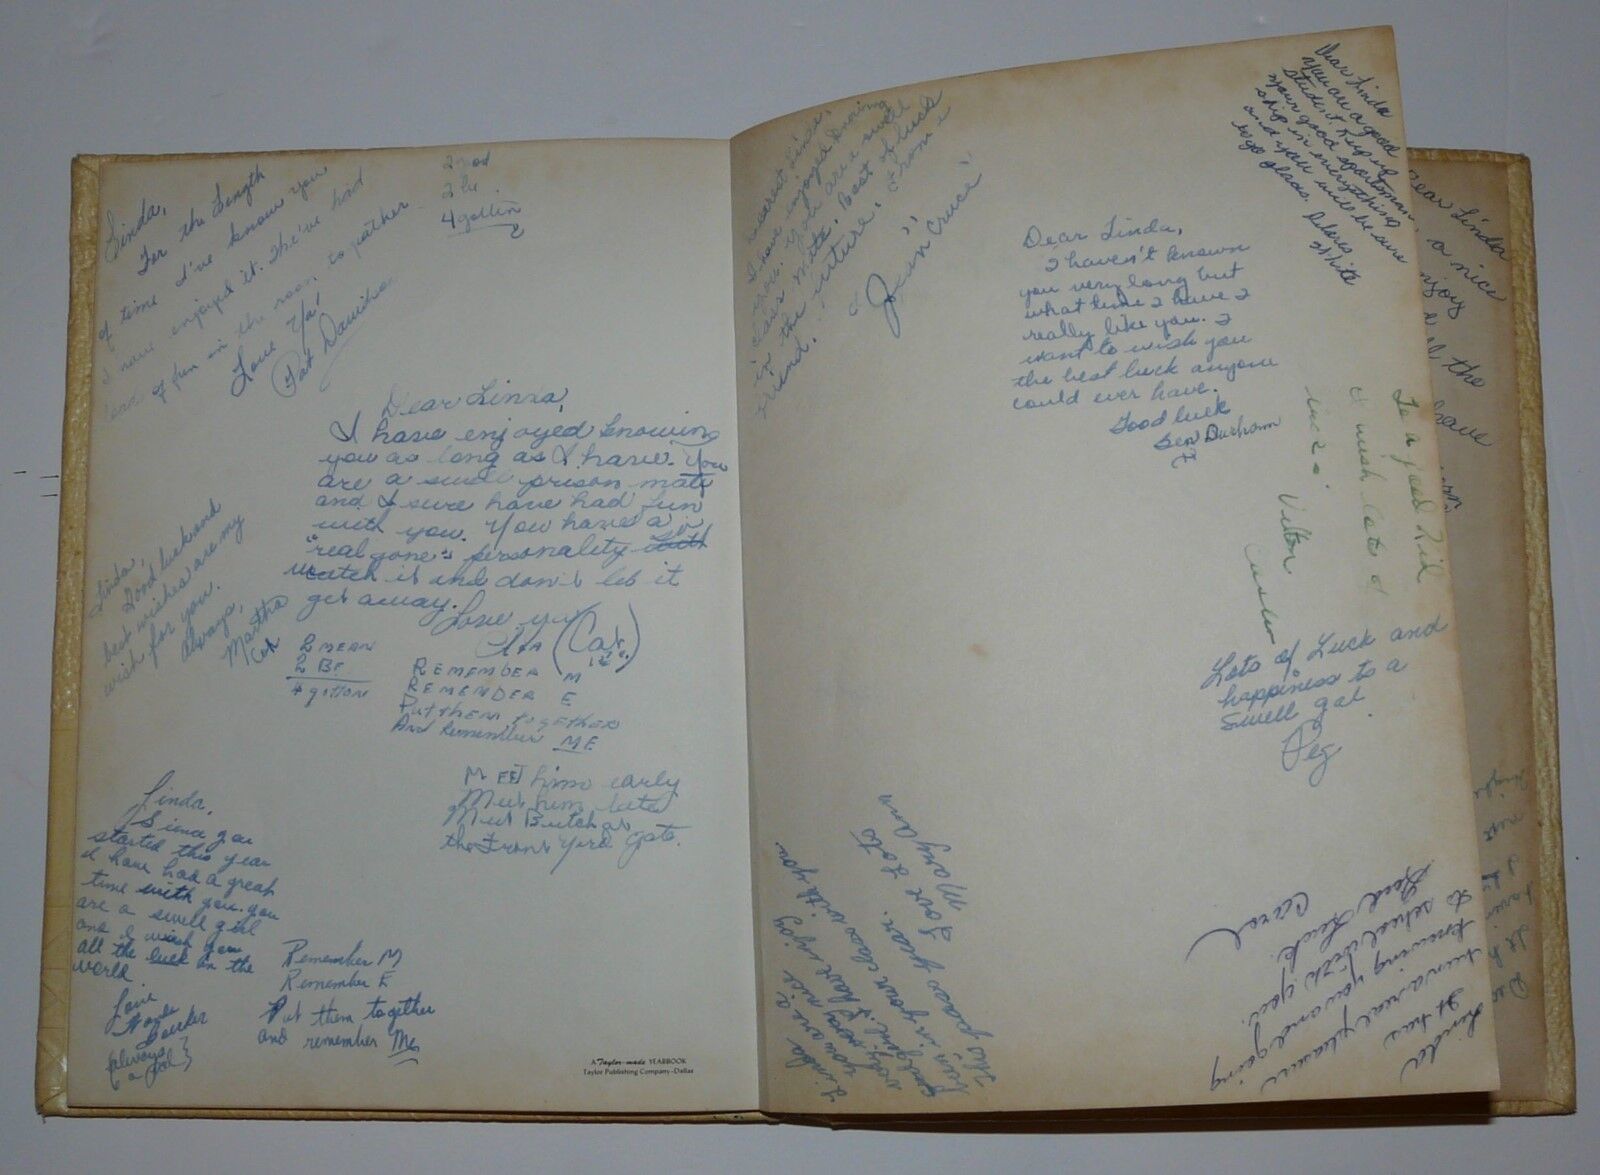 Linda,
For the Length
of time I've know you
I have enjoyed it. We've had
of fun in the room to gather
Love Ya'
Pat
2 nod
2 be
4 gotten
Dear Linda,
I have enjoyed knowing
you as long as I have. You
are a swell prison mate
and I sure have had fun
with you. You have a
"real gone" personality
watch it and don't let it
get away.
Love ya
(Cat)
Linda,
Good luck and
best wishes are my
wish for you.
Always,
Martha
2 MEAN
2 BE
4 gotten
REMEMBER M
REMEMBER E
Put them together
And Remember ME
MEET him early
Meet him late
Meet Butch at
the Front Yard Gate.
Linda,
Since you
started this year
I have had a great
time with you. you
are a swell girl
and I wish you
all the luck in the
world
Love
Barker
(Always
a pal)
Remember M
Remember E
Put them together
and remember Me
A Taylor-made YEARBOOK
Taylor Publishing Company-Dallas
Dearest Linda,
I have enjoyed knowing
you. You are a swell
class mate. Best of luck
in the future. From a
friend...
"Jean Cruce"
Dear Linda
You are a good
student. Keep up
your good sportsman-
ship in everything
and you will be sure
to go places.
White
Dear Linda,
I haven't known
you very long but
what time I have I
really like you. I
want to wish you
the best luck anyone
could ever have.
Good luck
Durham
To a good Kid
I wish lots of
luck
Lots of Luck and
happiness to a
swell gal
Peg
Linda
You are a
very nice
girl. I have enjoy
being in your class with you
this past year.
Love Lots
Mary Ann
Linda
It has
been a real pleasure
knowing you and going
to school with you.
Good Luck
Carol
Dear Linda
a nice
enjoy
the
have